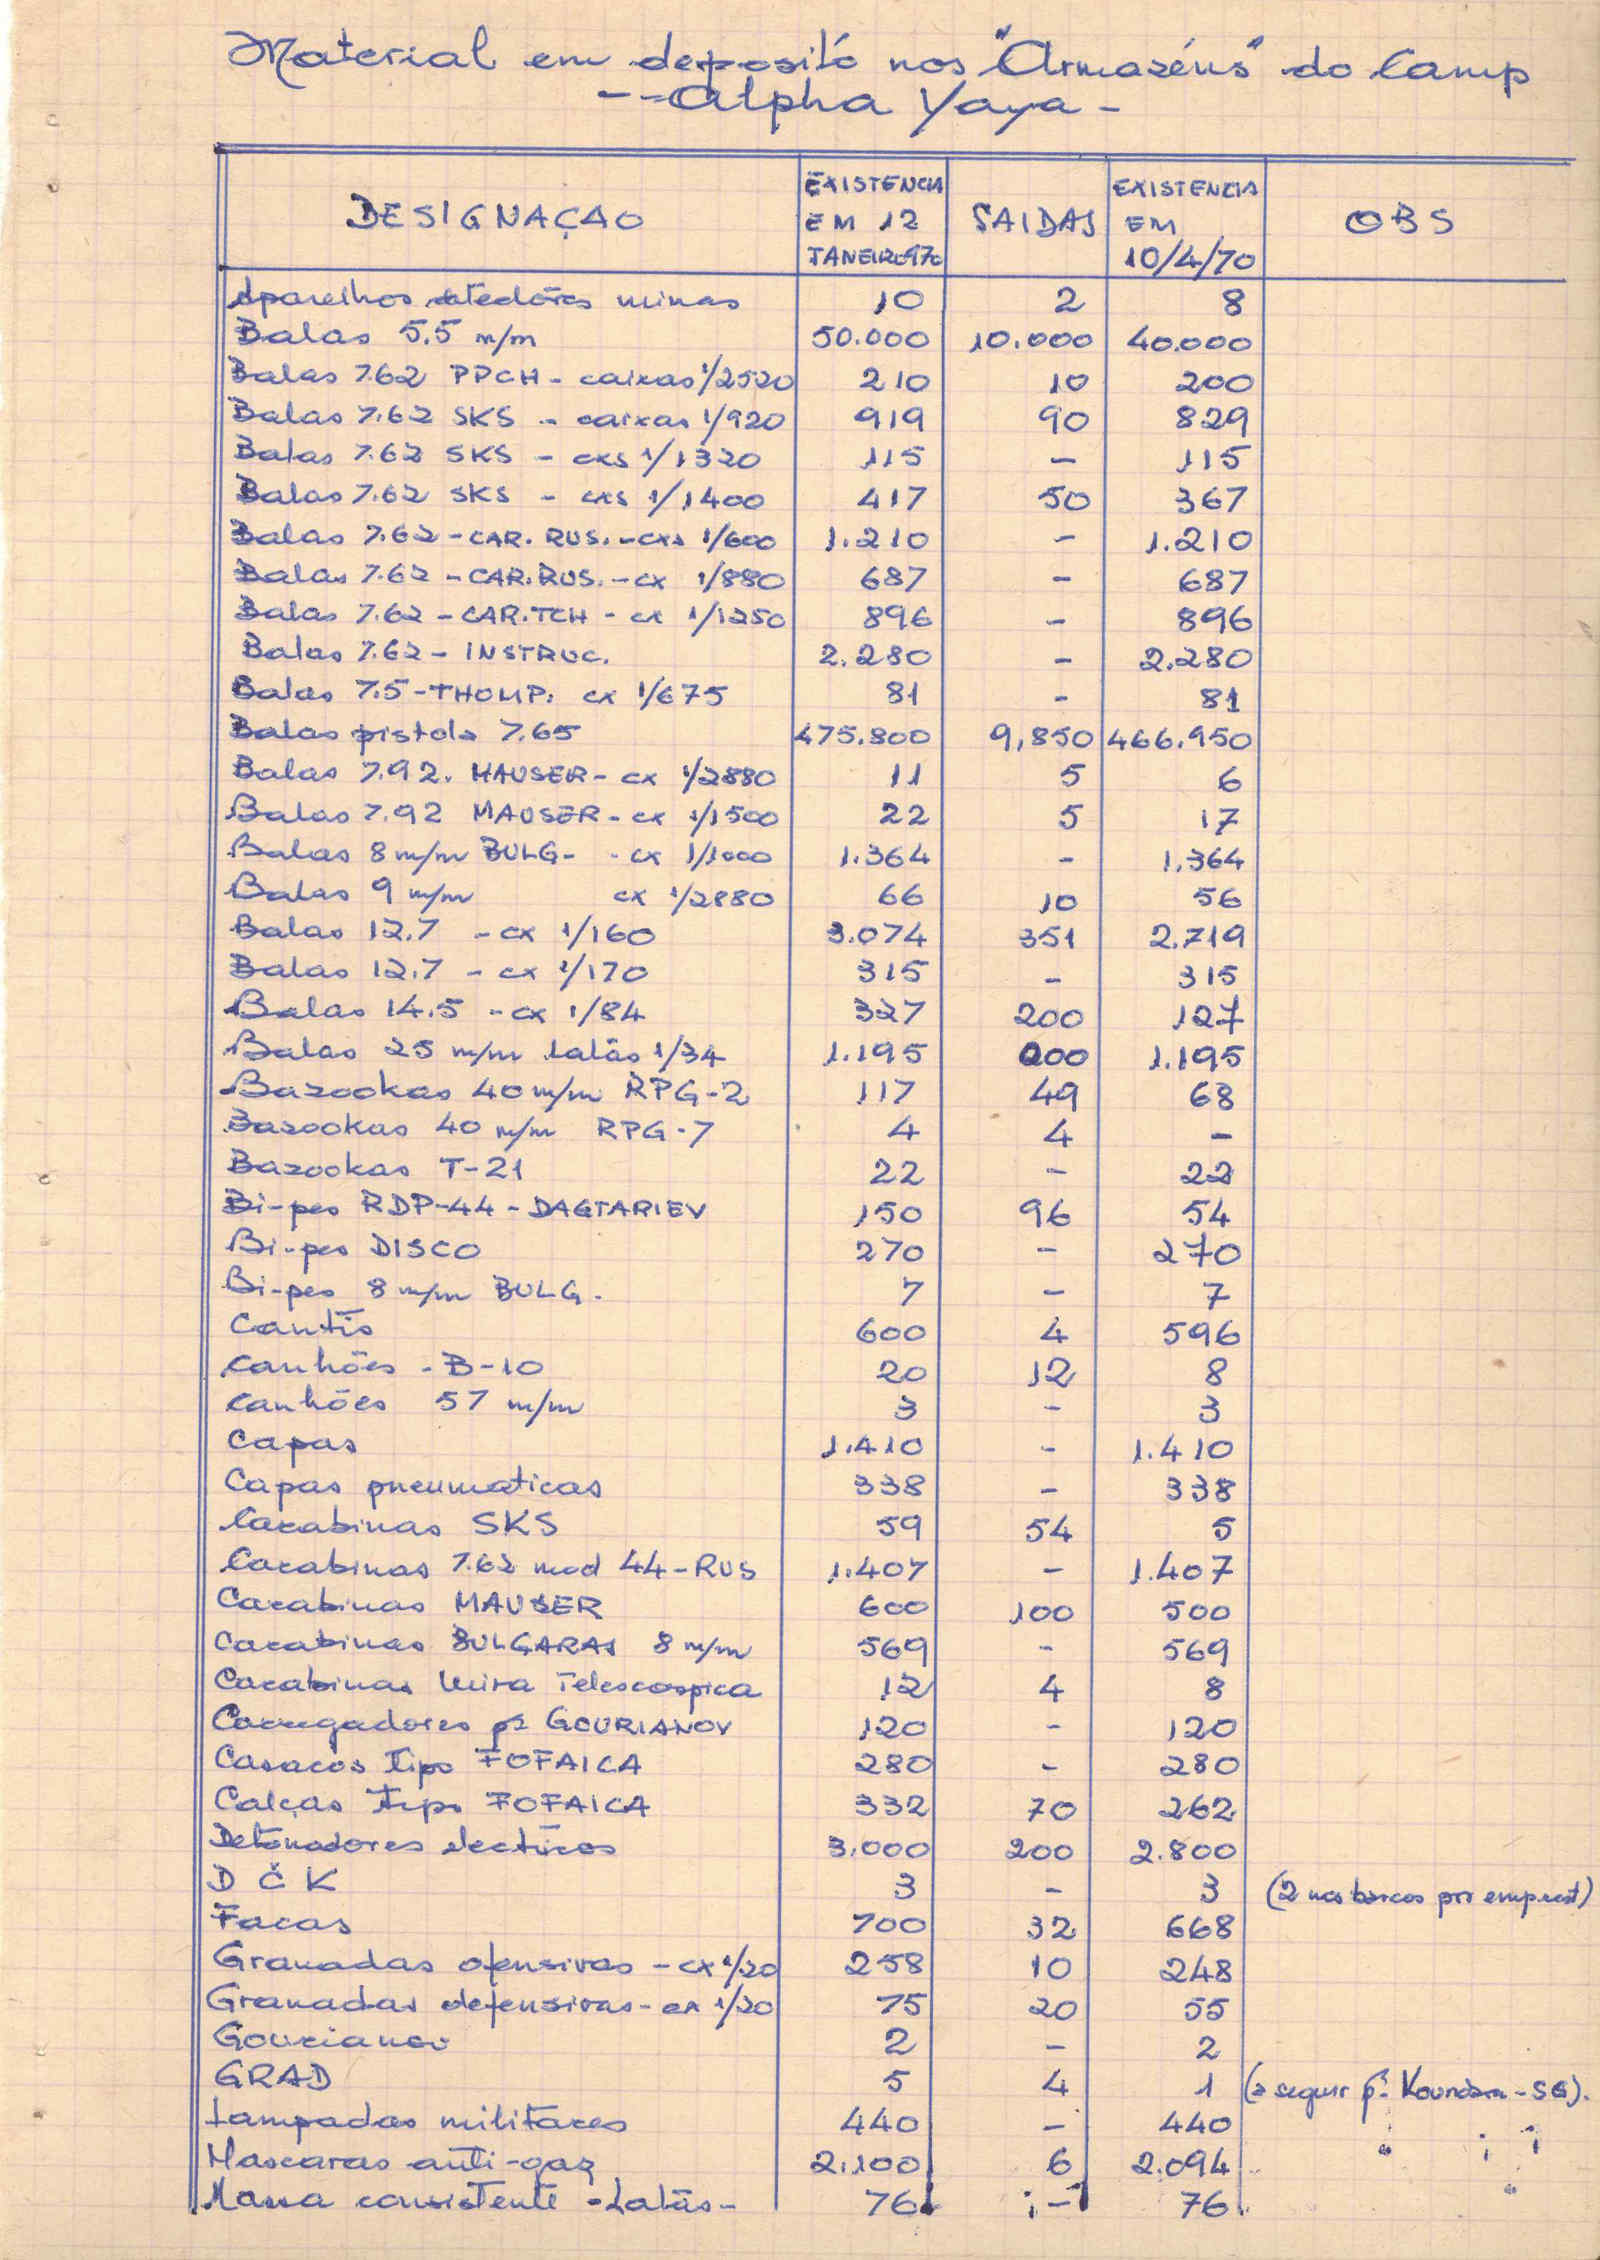 Material em depositó nos "Armazéns" do Camp
-- Alpha Yaya -
DESIGNAÇAO | EXISTENCIA EM 12 JANEIRO 970 | SAIDAS | EXISTENCIA EM 10/4/70 | OBS
Aparelhos detedôres minas 10 2 8
Balas 5.5 m/m 50.000 10.000 40.000
Balas 7.62 PPCH - caixas 1/2520 210 10 200
Balas 7.62 SKS - caixas 1/920 919 90 829
Balas 7.62 SKS - cxs 1/1320 115 - 115
Balas 7.62 SKS - cxs 1/1400 417 50 367
Balas 7.62 - CAR. RUS. - cxs 1/600 1.210 - 1.210
Balas 7.62 - CAR. RUS. - cx 1/880 687 - 687
Balas 7.62 - CAR. TCH - cx 1/1250 896 - 896
Balas 7.62 - INSTRUC. 2.280 - 2.280
Balas 7.5 - THOMP. cx 1/675 81 - 81
Balas pistola 7.65 475.800 9,850 466.950
Balas 7.92. MAUSER - cx 1/2880 11 5 6
Balas 7.92 MAUSER - cx 1/1500 22 5 17
Balas 8 m/m BULG - - cx 1/1000 1.364 - 1.364
Balas 9 m/m cx 1/2880 66 10 56
Balas 12.7 - cx 1/160 3.074 351 2.719
Balas 12.7 - cx 1/170 315 - 315
Balas 14.5 - cx 1/84 327 200 127
Balas 25 m/m latãs 1/34 1.195 200 1.195
Bazookas 40 m/m RPG-2 117 49 68
Bazookas 40 m/m RPG-7 4 4 -
Bazookas T-21 22 - 22
Bi-pes RDP-44 - DAGTARIEV 150 96 54
Bi-pes DISCO 270 - 270
Bi-pes 8 m/m BULG. 7 - 7
Cantis 600 4 596
Canhões - B-10 20 12 8
Canhões 57 m/m 3 - 3
Capas 1.410 - 1.410
Capas pneumaticas 338 - 338
Carabinas SKS 59 54 5
Carabinas 7.62 mod 44 - RUS 1.407 - 1.407
Carabinas MAUSER 600 100 500
Carabinas BULGARAS 8 m/m 569 - 569
Carabinas Mira Telescospica 12 4 8
Carregadores pª GOURIANOV 120 - 120
Casacos tipo FOFAICA 280 - 280
Calças tipo FOFAICA 332 70 262
Detonadores electricos 3.000 200 2.800
D Č K 3 - 3 (2 nos barcos por emprest)
Facas 700 32 668
Granadas ofensivas - cx 1/20 258 10 248
Granadas defensivas - cx 1/20 75 20 55
Gourianov 2 - 2
GRAD 5 4 1 (a seguir pª. Koundara - SG).
Lampadas militares 440 - 440
Mascaras anti-gaz 2.100 6 2.094
Massa consistente - Latãs - 76 - 76